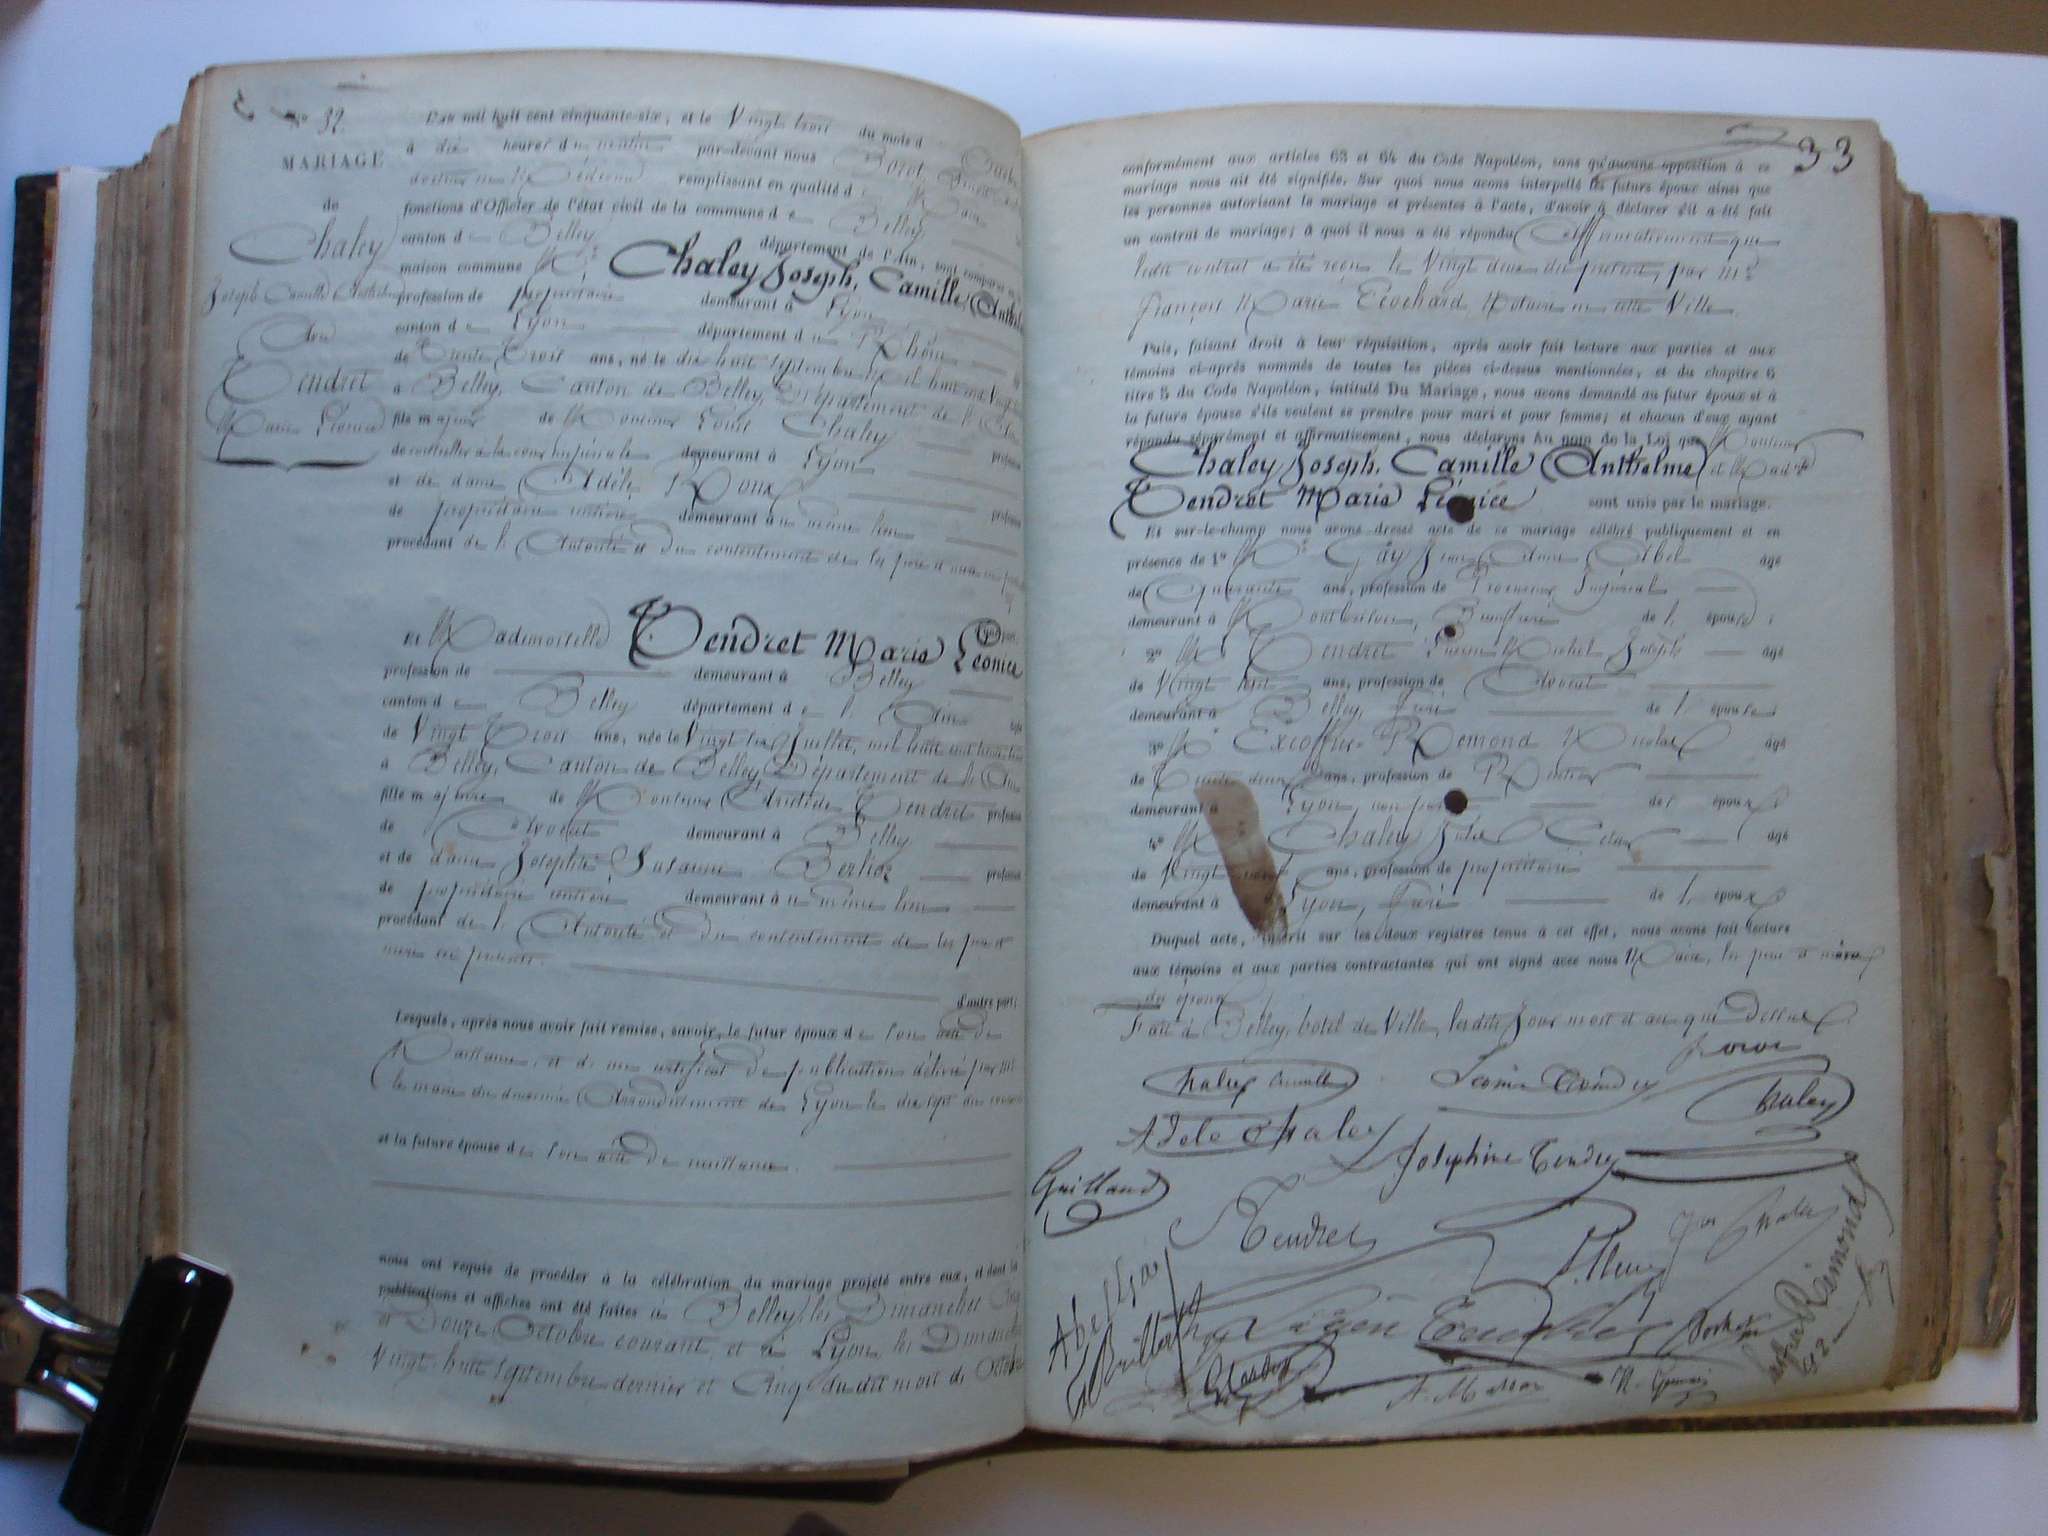 N° 32.
MARIAGE
de
Chaley
Joseph Camille Anthelme
Avec
Tendret
Marie Léonice
L'an mil huit cent cinquante-six, et le Vingt trois du mois d'
à dix heures du matin par-devant nous
docteur en Médecine remplissant en qualité de Maire
fonctions d'Officier de l'état civil de la commune de Belley
canton de Belley département de l'Ain, sont comparus
maison commune Mr Chaley Joseph, Camille
profession de propriétaire demeurant à Lyon
canton de Lyon département du Rhône
de trente trois ans, né le dix huit septembre mil huit cent vingt
à Belley, Canton de Belley, Département de l'Ain
fils majeur de Monsieur Louis Chaley profession
de conseiller à la cour impériale demeurant à Lyon
et de dame Adèle Roux profession
de propriétaire rentière demeurant au même lieu
procédant de l'Autorité et du consentement de ses père et mère
d'une part.
Et Mademoiselle Tendret Marie Léonice
profession de demeurant à Belley
canton de Belley département de l'Ain âgée
de Vingt Trois ans, née le Vingt six Juillet, mil huit cent trente trois
à Belley, Canton de Belley, Département de l'Ain
fille majeure de Monsieur Aristide Tendret profession
de Avocat demeurant à Belley
et de dame Joséphine Susanne Berlioz profession
de propriétaire rentière demeurant au même lieu
procédant de l'Autorité et du consentement de ses père et
mère ici présents.
d'autre part;
Lesquels, après nous avoir fait remise, savoir, le futur époux de son acte de
Naissance, et d'un certificat de publication délivré par Mr
le maire du deuxième Arrondissement de Lyon le dix sept du courant
et la future épouse de son acte de naissance.
nous ont requis de procéder à la célébration du mariage projeté entre eux, et dont les
publications et affiches ont été faites à Belley, les Dimanches Cinq
et Douze Octobre courant et à Lyon les Dimanches
Vingt-huit septembre dernier et Cinq du dit mois de Octobre
33
conformément aux articles 63 et 64 du Code Napoléon, sans qu'aucune opposition à ce
mariage nous ait été signifiée. Sur quoi nous avons interpellé les futurs époux ainsi que
les personnes autorisant le mariage et présentes à l'acte, d'avoir à déclarer s'il a été fait
un contrat de mariage; à quoi il nous a été répondu Affirmativement que
ledit contrat a été reçu le Vingt deux du présent, par Me
François Marie Trochard Notaire en cette Ville.
Puis, faisant droit à leur réquisition, après avoir fait lecture aux parties et aux
témoins ci-après nommés de toutes les pièces ci-dessus mentionnées, et du chapitre 6
titre 5 du Code Napoléon, intitulé Du Mariage, nous avons demandé au futur époux et à
la future épouse s'ils veulent se prendre pour mari et pour femme; et chacun d'eux ayant
répondu séparément et affirmativement, nous déclarons Au nom de la Loi que Monsieur
Chaley Joseph, Camille Anthelme et Mad.lle
Tendret Marie Léonice sont unis par le mariage.
Et sur-le-champ nous avons dressé acte de ce mariage célébré publiquement et en
présence de 1° Mr Gay Jean Anne Abel âgé
de Quarante ans, profession de Procureur Impérial
demeurant à Montbrison, Beau frère de l'épouse;
2° Mr Tendret Lucien Michel Joseph âgé
de Vingt sept ans, profession de Avocat
demeurant à Belley, frère de l'épouse
3° Mr Excoffier-Rémond Nicolas âgé
de Trente deux ans, profession de Rentier
demeurant à Lyon, non parent de l'époux
4° Mr Chaley Jules César âgé
de Vingt ans, profession de propriétaire
demeurant à Lyon, frère de l'époux
Duquel acte, inscrit sur les deux registres tenus à cet effet, nous avons fait lecture
aux témoins et aux parties contractantes qui ont signé avec nous Maire, les père et mère
des époux
Fait à Belley, hôtel de Ville, lesdits Jour mois et an que Dessus.
Chaley Camille
Léonice Tendret
Chaley
Adele Chaley
Joséphine Tendret
Guilland
Tendret
Jules Chaley
Abel Gay